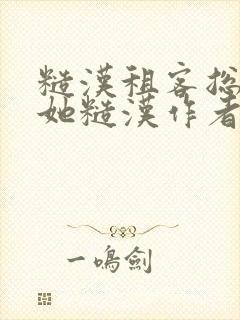 糙漢租客總
她糙漢作者
一鳴劍